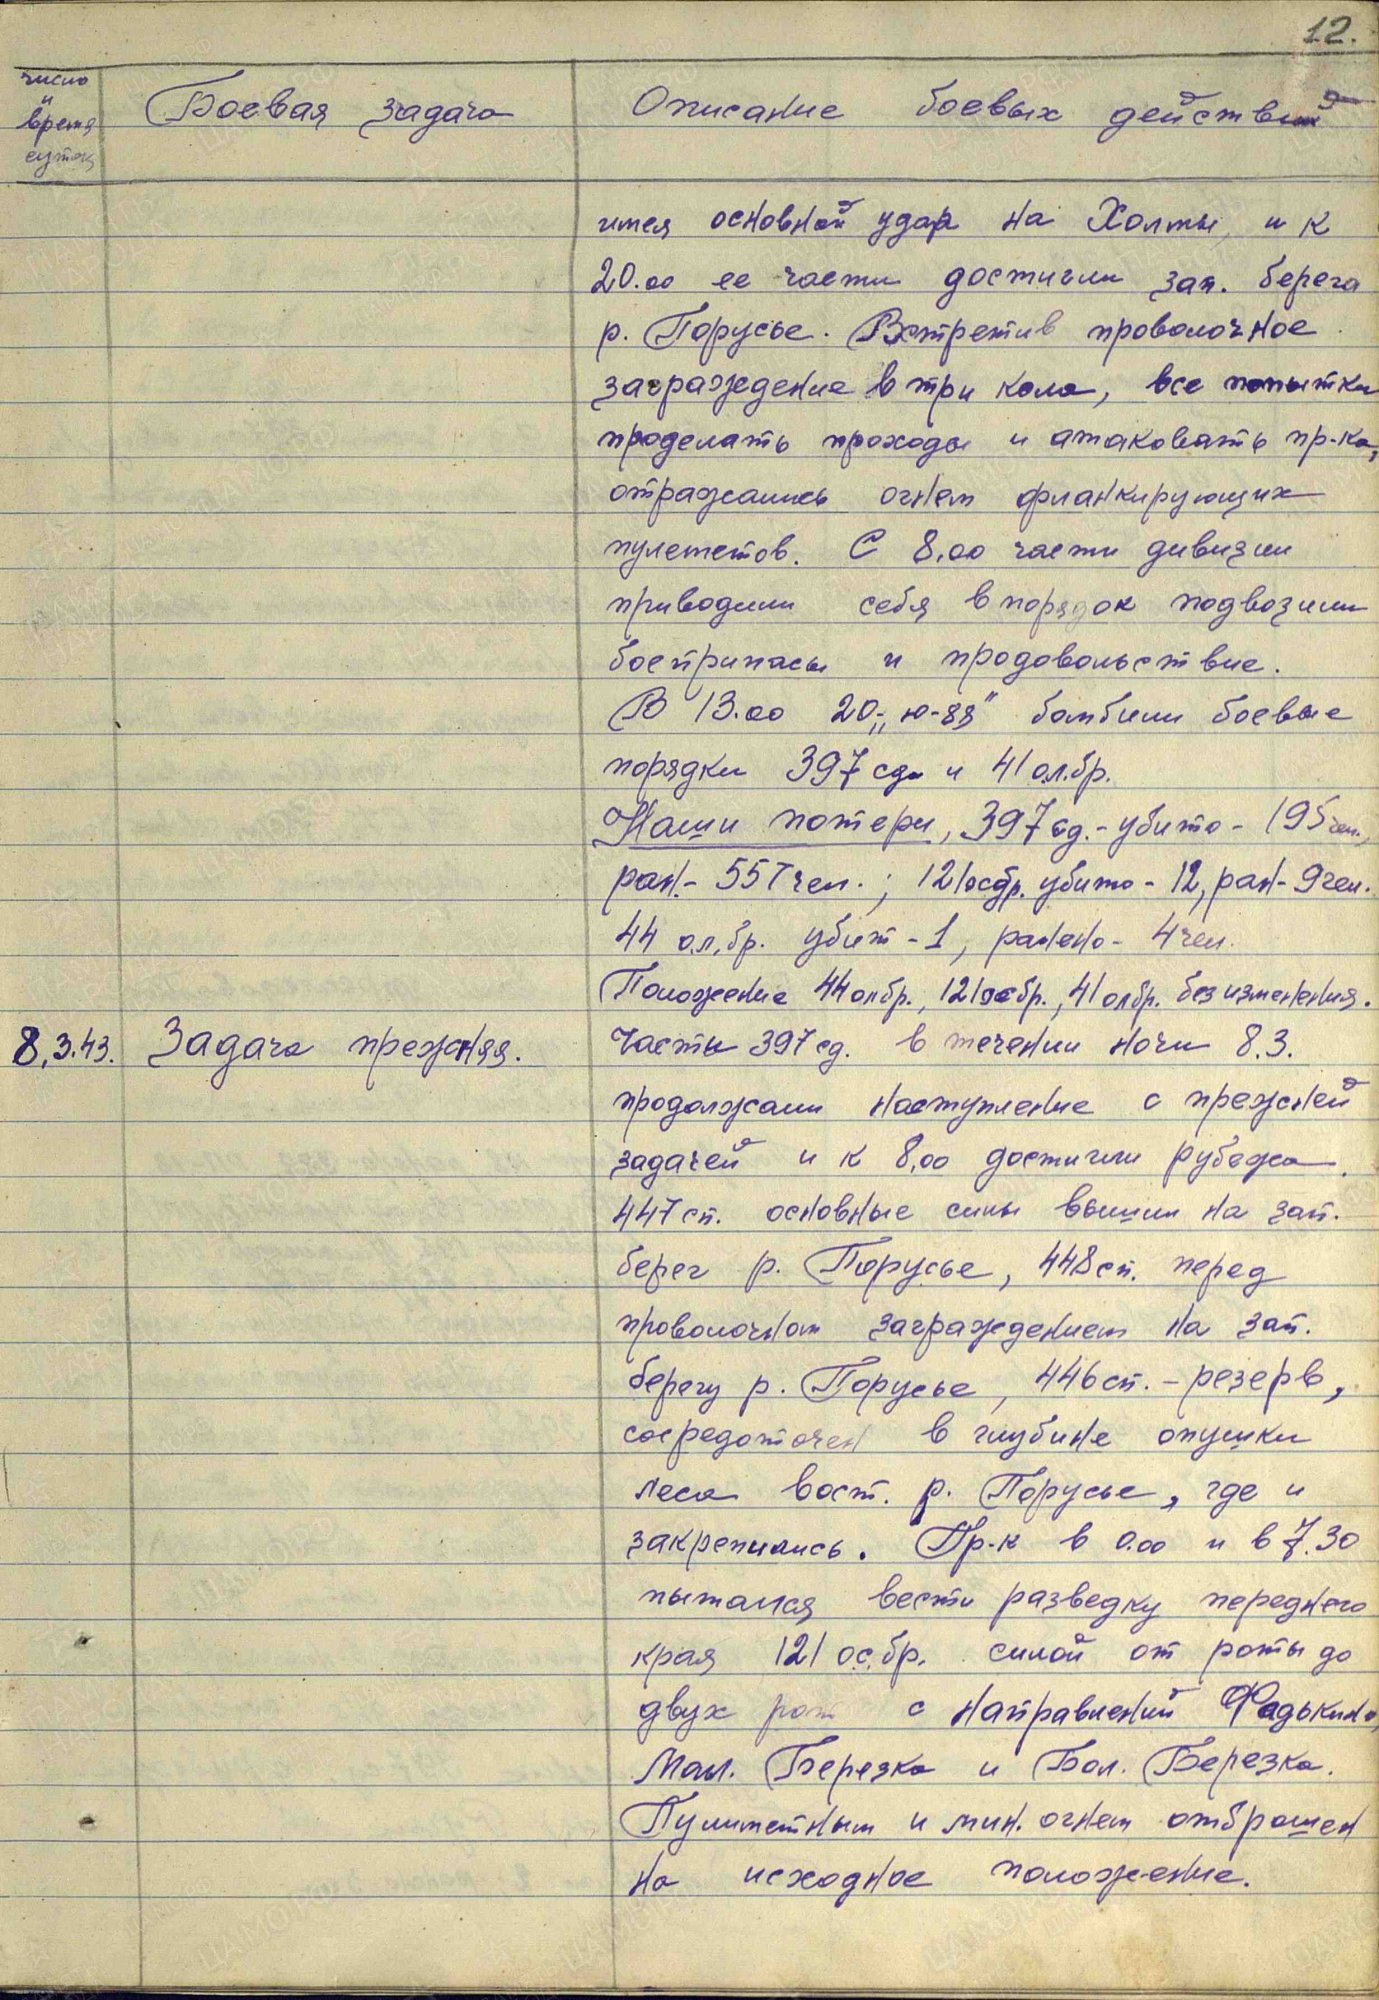 12.
число
и
время
суток
Боевая задача
Описание боевых действий
ился основной удар на Холмы, и к
20.00 ее части достигли зап. берега
р. Порусье. Встретив проволочное
заграждение в три кола, все попытки
проделать проходы и атаковать пр-ка,
отражались огнем фланкирующих
пулеметов. С 8.00 части дивизии
приводили себя в порядок подвозили
боеприпасы и продовольствие.
В 13.00 20-„Ю-88" бомбили боевые
порядки 397 сд и 41 о.л.бр.
Наши потери, 397 сд. - убито - 195 чел.,
ран. - 557 чел.; 121 осбр. убито - 12, ран - 9 чел.
44 о.л.бр. убит - 1, ранено - 4 чел.
Положение 44 олбр., 121 осбр., 41 олбр. без изменения.
8.3.43. Задача прежняя.
Части 397 сд. в течении ночи 8.3.
продолжали наступление с прежней
задачей и к 8.00 достигли рубежа.
447 сп. основные силы вышли на зап.
берег р. Порусье, 448 сп. перед
проволочном заграждением на зап.
берегу р. Порусье, 446 сп. - резерв,
сосредоточен в глубине опушки
леса вост. р. Порусье, где и
закрепились. Пр-к в 0.00 и в 7.30
пытался вести разведку переднего
края 121 ос.бр. силой от роты до
двух рот с направлений Фадькино,
Мал. Березка и Бол. Березка.
Пулиметным и мин. огнем отброшен
на исходное положение.